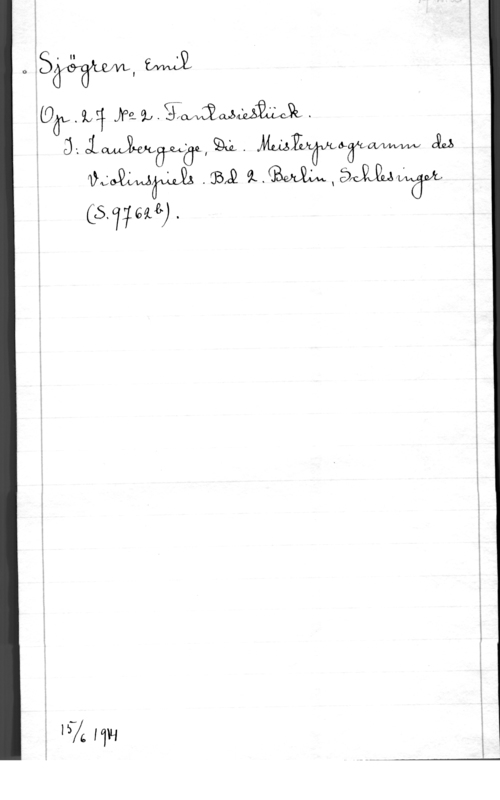 Sjögren, Emil
Op. 27 No 2. Fantasiestück.
J: Zaubergeige, Die. Meisterprogramm des
Violinspiels. Bd 2. Berlin, Schlesinger
(S. 9762b).
15/6 1914